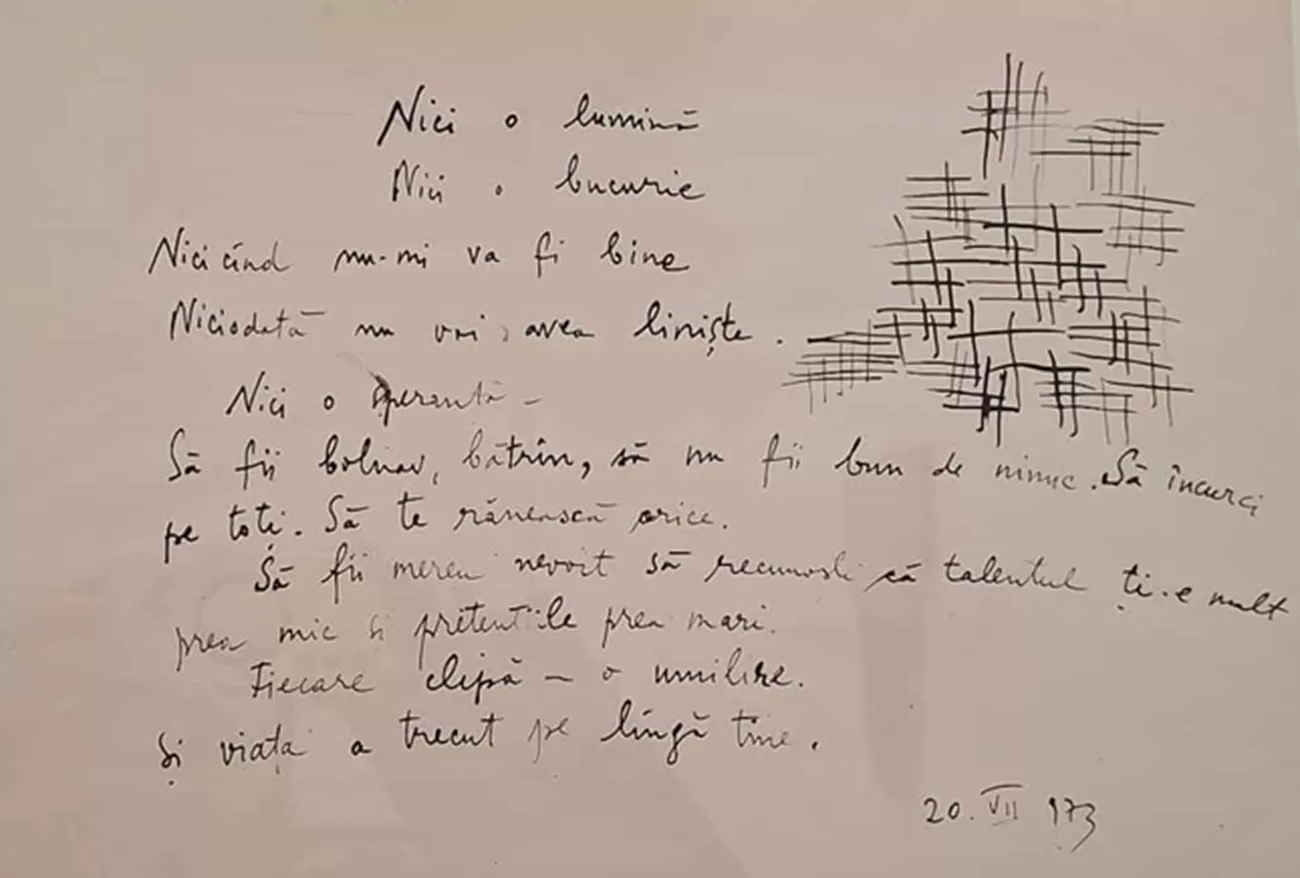 Nici o lumină
Nici o bucurie
Nicicînd nu-mi va fi bine
Niciodată nu voi avea liniște.
Nici o speranță -
Să fii bolnav, bătrîn, să nu fii bun de nimic. Să încurci
pe toți. Să te rănească orice.
Să fii mereu nevoit să recunoști că talentul ți-e mult
prea mic și pretențiile prea mari.
Fiecare clipă - o umilire.
Și viața a trecut pe lîngă tine.
20. VII 973